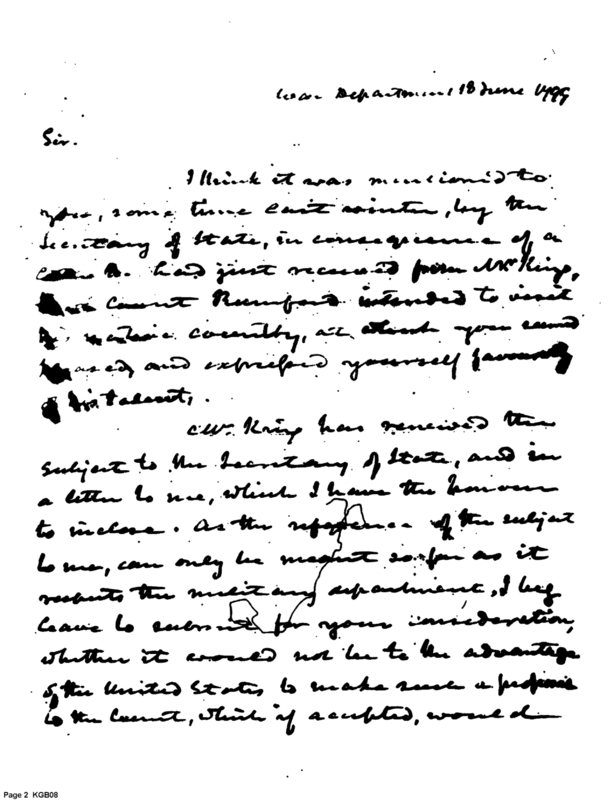 War Department 18 June 1799
Sir.
I think it was mentioned to
you, some time last winter, by the
Secretary of State, in consequence of a
he had just received from Mr. King,
Count Rumford intended to visit
his native country, at which you seemed
pleased, and expressed yourself favourably
of his talents.
Mr. King has renewed the
subject to the Secretary of State, and in
a letter to me, which I have the honour
to inclose. As the reference of the subject
to me, can only be meant so far as it
respects the military department, I beg
leave to submit for your consideration,
whether it would not be to the advantage
of the United States to make such a
to the Count, which if accepted, would
Page 2 KGB08